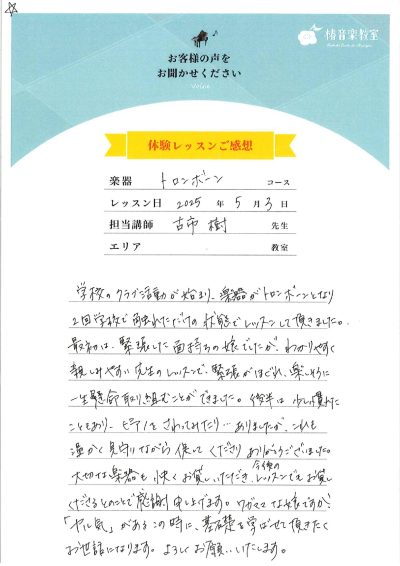 椿音楽教室
お客様の声を
お聞かせください
Voice
体験レッスンご感想
楽器 トロンボーン コース
レッスン日 2025 年 5 月 3 日
担当講師 古市 樹 先生
エリア 教室
学校のクラブ活動が始まり、楽器がトロンボーンとなり
2回学校で触れただけの状態でレッスンして頂きました。
最初は、緊張した面持ちの娘でしたが、わかりやすく
親しみやすい先生のレッスンで、緊張がほぐれ、楽しそうに
一生懸命取り組むことができました。後半は少し慣れた
こともあり、ピアノをさわってみたり…ありましたが、これも
温かく見守りながら 促してくださり ありがとうございました。
大切な楽器も快くお貸しいただき、今後のレッスンでもお貸し
くださるとのことで感謝申し上げます。ワガママな娘ですが、
「ヤル気」がある この時に、基礎を学ばせて頂きたく
お世話になります。よろしくお願いいたします。